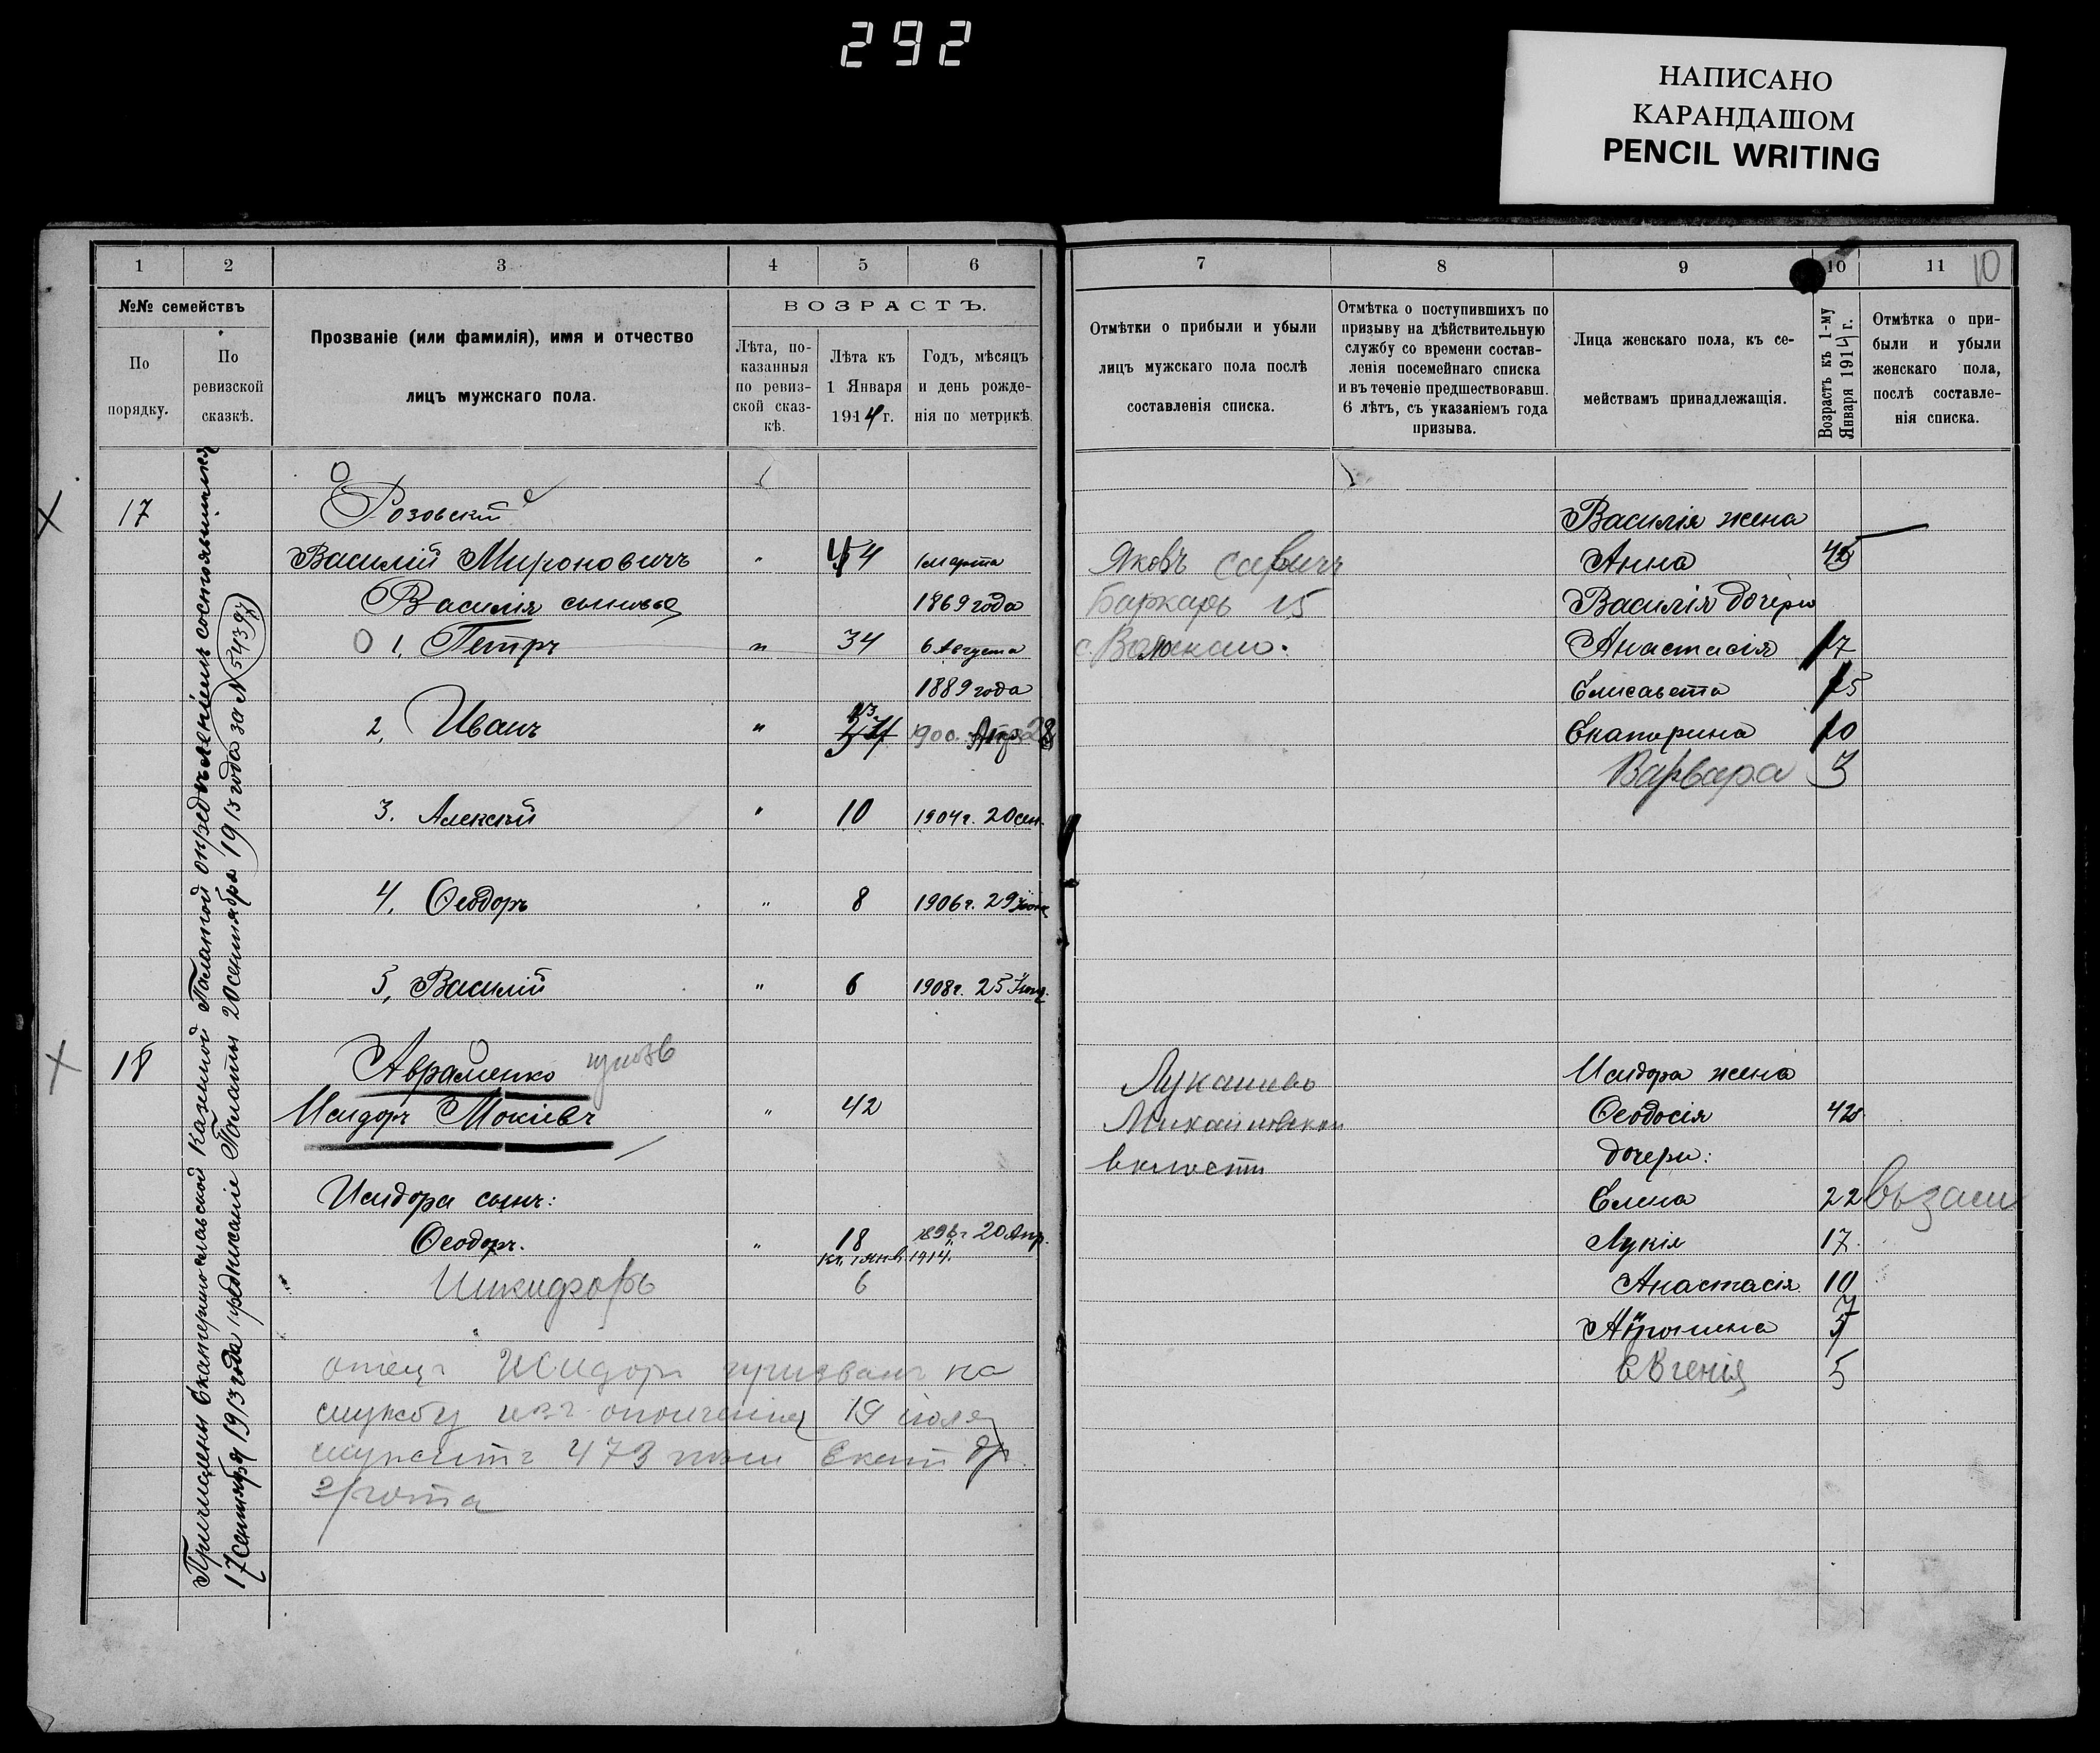 292
НАПИСАНО
КАРАНДАШОМ
PENCIL WRITING
1 2 3 4 5 6
№№ семействъ
По порядку.
По ревизской сказкѣ.
Прозваніе (или фамилія), имя и отчество
лицъ мужскаго пола.
ВОЗРАСТЪ.
Лѣта, по-
казанныя
по ревиз-
ской сказ-
кѣ.
Лѣта къ
1 Января
1914 г.
Годъ, мѣсяцъ
и день рожде-
нія по метрикѣ.
Причислены Екатеринославской Казенной Палатой опредѣленіемъ состоявшимся
17 сентября 1913 года предписаніе Палаты 20 сентября 1913 года за № 54397
17
Розовскій
Василій Мироновичъ " 44 1 марта
Василія сыновья 1869 года
1, Петръ " 34 6 Августа
1889 года
2, Иванъ " 13 190 Апр 28
3. Алексѣй " 10 1904 г. 20 сен.
4, Ѳеодоръ " 8 1906 г. 29
5, Василій " 6 1908 г. 25
18 Авраменко
Исидоръ Мокіевъ " 42
Исидора сынъ:
Ѳеодоръ. " 18 1896 г 20 Апр.
къ 1 янв. 1914
Никифоръ 6
отецъ Исидоръ призванъ на
службу изъ ополченія 19 іюля
служитъ 473 Екат др.
2/рота
7 8 9 10 11 10
Отмѣтки о прибыли и убыли
лицъ мужскаго пола послѣ
составленія списка.
Отмѣтка о поступившихъ по
призыву на дѣйствительную
службу со времени состав-
ленія посемейнаго списка
и въ теченіе предшествовавш.
6 лѣтъ, съ указаніемъ года
призыва.
Лица женскаго пола, къ се-
мействамъ принадлежащія.
Возрастъ къ 1-му
Января 1914 г.
Отмѣтка о при-
были и убыли
женскаго пола,
послѣ составле-
нія списка.
Василія жена
Яковъ Савичъ Анна
Баркарь 15 Василія дочери
Анастасія 17
Елисавета 15
Екатерина 10
Варвара 3
Исидора жена
Лукашево
Ѳеодосія 42
Михайловской
волости дочери:
Елена 22
Лукія 17
Анастасія 10
7
Евгенія 5